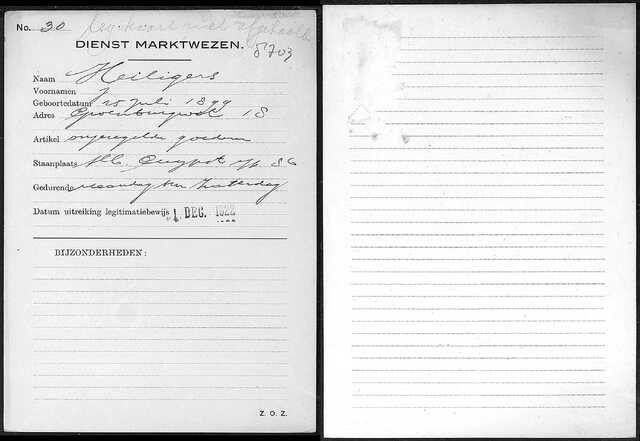 No. 30
DIENST MARKTWEZEN.
5703
Naam Heiligers
Voornamen J
Geboortedatum 25 Juli 1899
Adres 18
Artikel ongeregelde goederen
Staanplaats Alb. Cuypstr t/o 86
Gedurende maandag t/m Zaterdag
Datum uitreiking legitimatiebewijs 1. DEC. 1922
BIJZONDERHEDEN:
Z. O. Z.